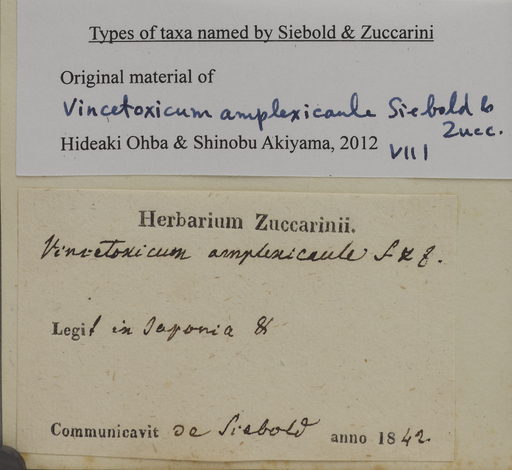 Types of taxa named by Siebold & Zuccarini
Original material of
Vincetoxicum amplexicaule Siebold &
Zucc.
Hideaki Ohba & Shinobu Akiyama, 2012 VIII
Herbarium Zuccarinii.
Vincetoxicum amplexicaule S & Z.
Legit in Japonia
Communicavit de Siebold anno 1842.